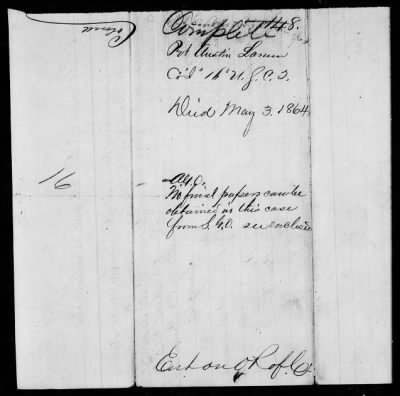 Colored
Complete 148.
Pvt Austin
Co "D" 16" U.S.C.T.
Died May 3. 1864
16
A.G.O.
No final papers can be
obtained in this case
from S.G.O. see enclosure
Ent on of Co